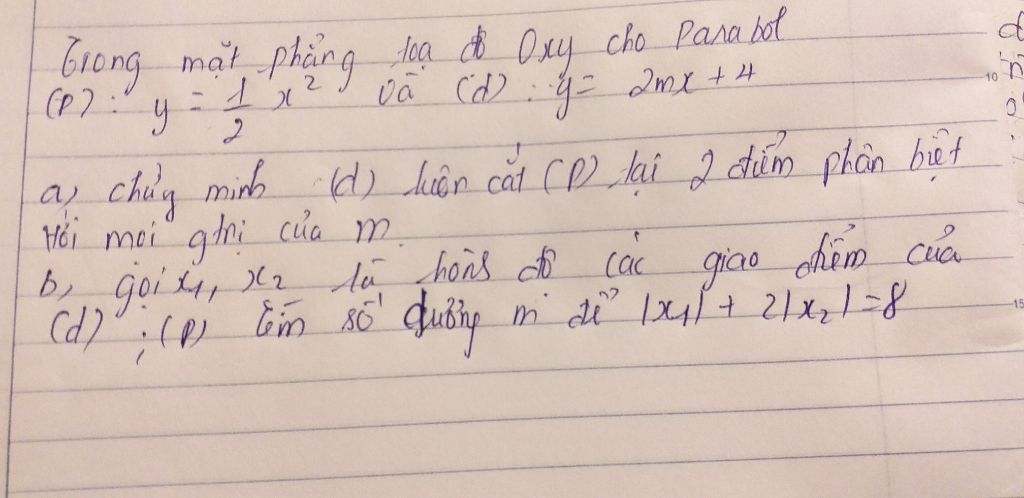 Trong mặt phẳng toạ độ Oxy cho Parabol
(P): y = 1/2 x² và (d): y = 2mx + 4
a, chứng minh (d) luôn cắt (P) tại 2 điểm phân biệt
Với mọi gtrị của m.
b, gọi x₁, x₂ là hoành độ các giao điểm của
(d); (P) tìm số dương m để |x₁| + 2|x₂| = 8
10
15